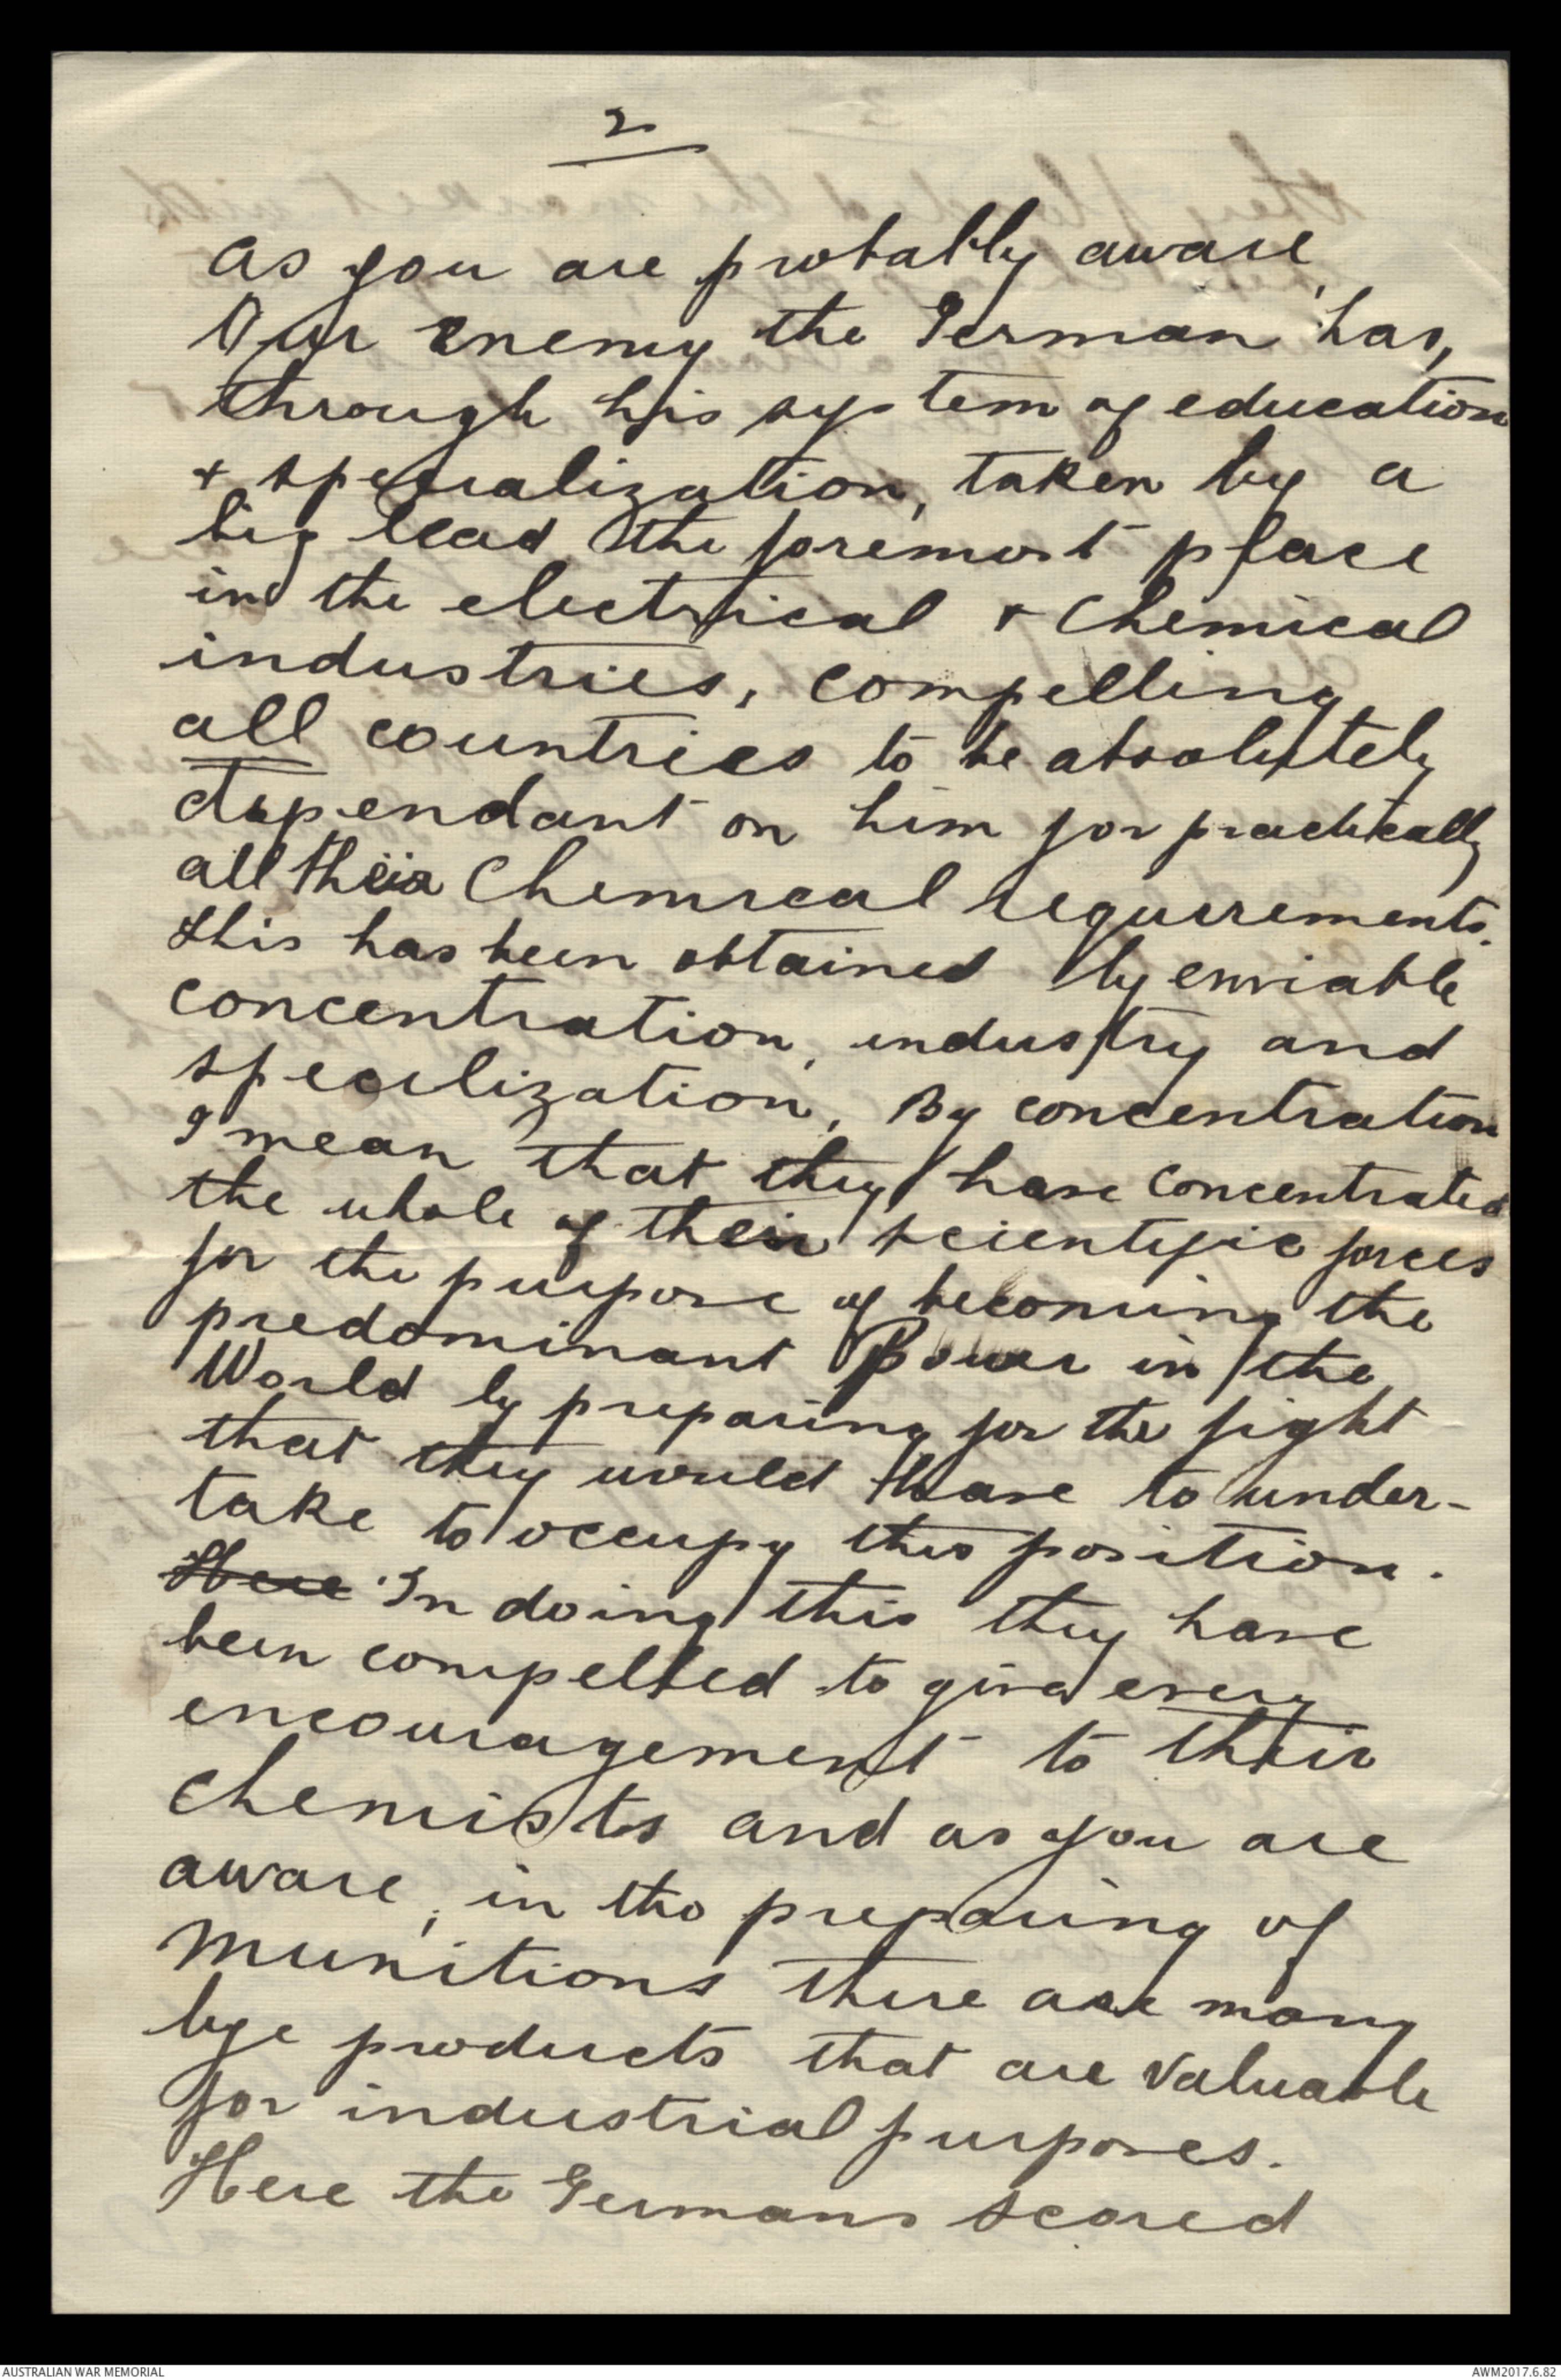 2
As you are probably aware,
Our enemy the German has,
through his system of education
+ specialization, taken by a
big lead the foremost place
in the electrical + Chemical
industries, compelling
all countries to be absolutely
dependant on him for practically
all their Chemical requirements.
This has been obtained by enviable
concentration, industry and
specilization, By concentration
I mean that they have concentrated
the whole of their scientific forces
for the purpose of becoming the
predominant Power in the
World by preparing for the fight
that they would have to under-
take to occupy this position.
Here In doing this they have
been compelled to give every
encouragement to their
chemists and as you are
aware, in the preparing of
Munitions there are many
bye products that are valuable
for industrial purposes.
Here the Germans scored
AUSTRALIAN WAR MEMORIAL
AWM2017.6.82